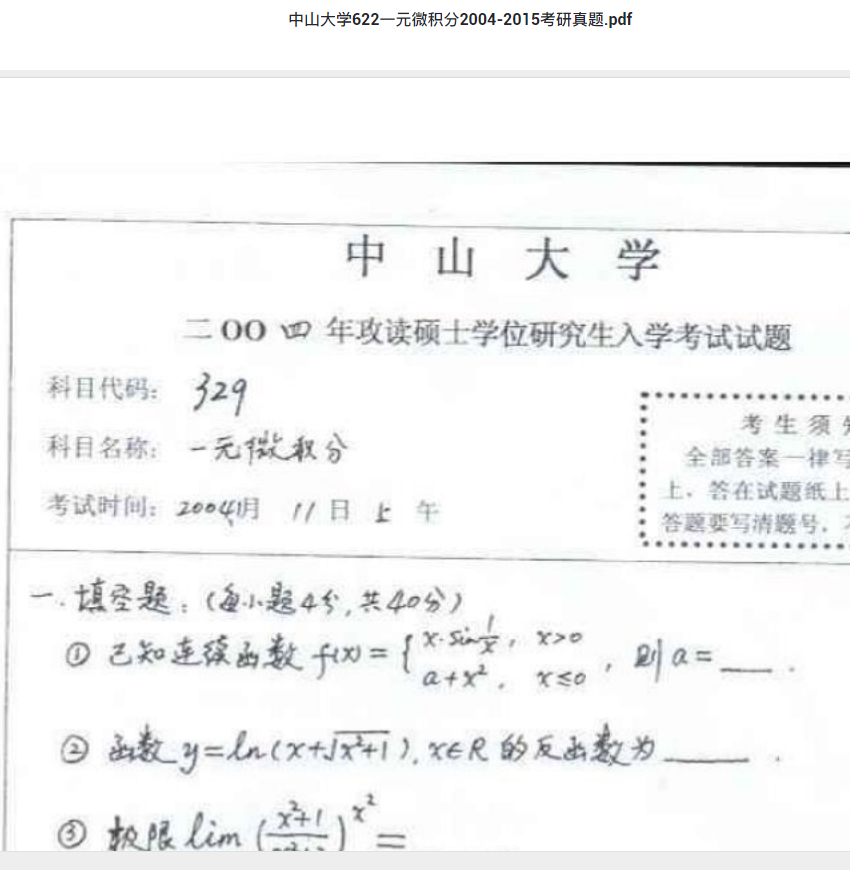 中山大学622一元微积分2004-2015考研真题.pdf
中 山 大 学
二00四年攻读硕士学位研究生入学考试试题
科目代码: 329
科目名称: 一元微积分
考试时间: 2004年1月 11日 上 午
考 生 须
全部答案一律写
上，答在试题纸上
答题要写清题号，
一. 填空题:（每小题4分,共40分）
① 已知连续函数 f(x) = { x·sin 1/x, x>0
a+x², x≤0 , 则 a = ___ .
② 函数 y=ln(x+√(x²+1)), x∈R 的反函数为 ______ .
③ 极限 lim (x²+1/)^x² =